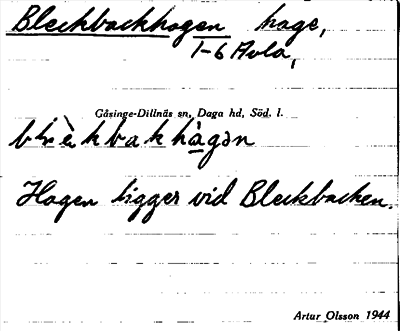 Bleckbackhagen hage,
1-6 Avla,
Gåsinge-Dillnäs sn, Daga hd, Söd. l.
blèkbakhàgən
Hagen ligger vid Bleckbacken.
Artur Olsson 1944